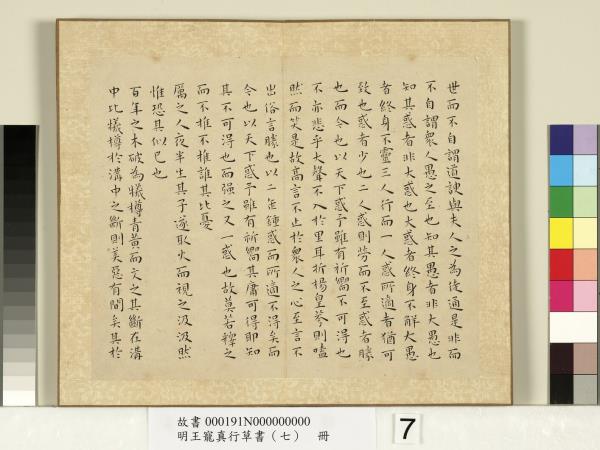 世而不自謂道諛與夫人之為徒通是非而
不自謂眾人愚之至也知其愚者非大愚也
知其惑者非大惑也大惑者終身不解大愚
者終身不靈三人行而一人惑所適者猶可
致也惑者少也二人惑則勞而不至惑者勝
也而今也以天下惑予雖有祈嚮不可得也
不亦悲乎大聲不入於里耳折楊皇荂則嗑
然而笑是故高言不止於眾人之心至言不
出俗言勝也以二缶鍾惑而所適不得矣而
今也以天下惑予雖有祈嚮其庸可得即知
其不可得也而强之又一惑也故莫若釋之
而不推不推誰其比憂
厲之人夜半生其子遽取火而視之汲汲然
惟恐其似己也
百年之木破為犧樽青黃而文之其斷在溝
中比犧樽於溝中之斷則美惡有間矣其於
故書 000191N000000000
明王寵真行草書（七） 冊
7